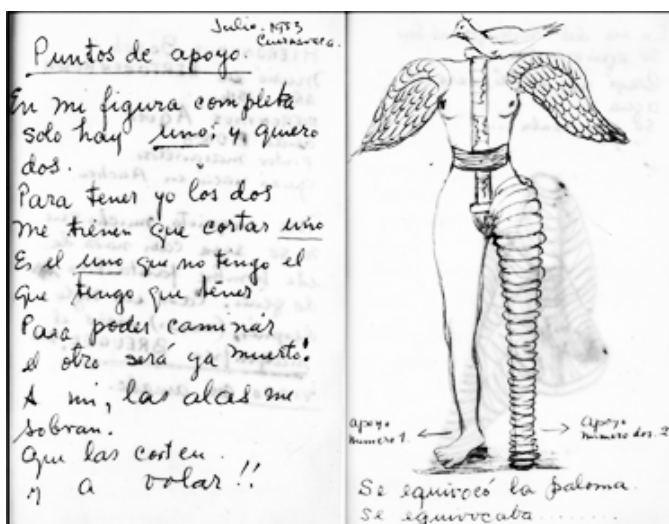 Julio. 1953
Cuernavaca.
Puntos de apoyo.
En mi figura completa
solo hay uno; y quiero
dos.
Para tener yo los dos
me tienen que cortar uno
Es el uno que no tengo el
que tengo que tener
Para poder caminar
el otro será ya muerto!
A mi, las alas me
sobran.
Que las corten
y a volar!!
apoyo
numero 1.
apoyo
numero dos. 2
Se equivocó la paloma.
Se equivocaba........